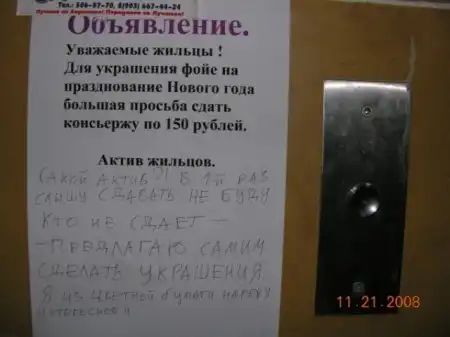 Тел.: 506-97-70, 8(903) 667-44-24
Объявление.
Уважаемые жильцы !
Для украшения фойе на
празднование Нового года
большая просьба сдать
консьержу по 150 рублей.
Актив жильцов.
КАКОЙ АКТИВ?! В 1Й РАЗ
СЛЫШУ СДАВАТЬ НЕ БУДУ
КТО НЕ СДАЕТ —
— ПРЕДЛАГАЮ САМИМ
СДЕЛАТЬ УКРАШЕНИЯ
Я ИЗ ЦВЕТНОЙ бумаги
11.21.2008